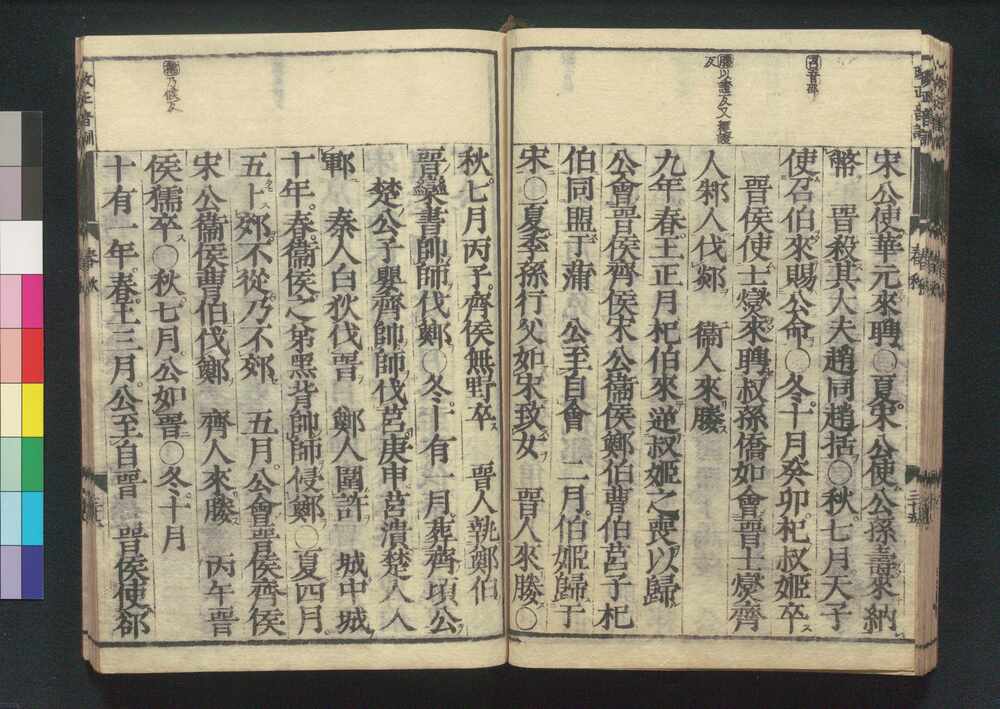 宋公使華元來聘○夏宋公使公孫壽來納
幣　晉殺其大夫趙同趙括○秋七月天子
使召伯來賜公命○冬十月癸卯杞叔姬卒
晉侯使士燮來聘叔孫僑如會晉士燮齊
人邾人伐郯　衞人來媵
九年春王正月杞伯來逆叔姬之喪以歸
公會晉侯齊侯宋公衞侯鄭伯曹伯莒子杞
伯同盟于蒲　公至自會　二月伯姬歸于
宋○夏季孫行父如宋致女　晉人來媵○
秋七月丙子齊侯無野卒　晉人執鄭伯
晉欒書帥師伐鄭○冬十有一月葬齊頃公
楚公子嬰齊帥師伐莒庚申莒潰楚人入
鄆　秦人白狄伐晉　鄭人圍許　城中城
十年春衞侯之弟黑背帥師侵鄭○夏四月
五卜郊不從乃不郊　五月公會晉侯齊侯
宋公衞侯曹伯伐鄭　齊人來媵　丙午晉
侯獳卒○秋七月公如晉○冬十月
十有一年春王三月公至自晉　晉侯使郤